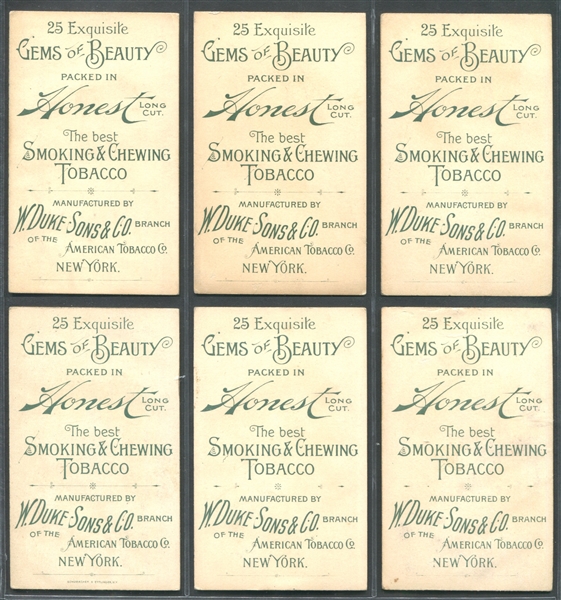 25 Exquisite
GEMS OF BEAUTY
PACKED IN
Honest LONG CUT.
The best
SMOKING & CHEWING
TOBACCO
MANUFACTURED BY
W. DUKE SONS & CO. BRANCH
OF THE AMERICAN TOBACCO CO.
NEW YORK.
25 Exquisite
GEMS OF BEAUTY
PACKED IN
Honest LONG CUT.
The best
SMOKING & CHEWING
TOBACCO
MANUFACTURED BY
W. DUKE SONS & CO. BRANCH
OF THE AMERICAN TOBACCO CO.
NEW YORK.
25 Exquisite
GEMS OF BEAUTY
PACKED IN
Honest LONG CUT.
The best
SMOKING & CHEWING
TOBACCO
MANUFACTURED BY
W. DUKE SONS & CO. BRANCH
OF THE AMERICAN TOBACCO CO.
NEW YORK.
25 Exquisite
GEMS OF BEAUTY
PACKED IN
Honest LONG CUT.
The best
SMOKING & CHEWING
TOBACCO
MANUFACTURED BY
W. DUKE SONS & CO. BRANCH
OF THE AMERICAN TOBACCO CO.
NEW YORK.
25 Exquisite
GEMS OF BEAUTY
PACKED IN
Honest LONG CUT.
The best
SMOKING & CHEWING
TOBACCO
MANUFACTURED BY
W. DUKE SONS & CO. BRANCH
OF THE AMERICAN TOBACCO CO.
NEW YORK.
25 Exquisite
GEMS OF BEAUTY
PACKED IN
Honest LONG CUT.
The best
SMOKING & CHEWING
TOBACCO
MANUFACTURED BY
W. DUKE SONS & CO. BRANCH
OF THE AMERICAN TOBACCO CO.
NEW YORK.